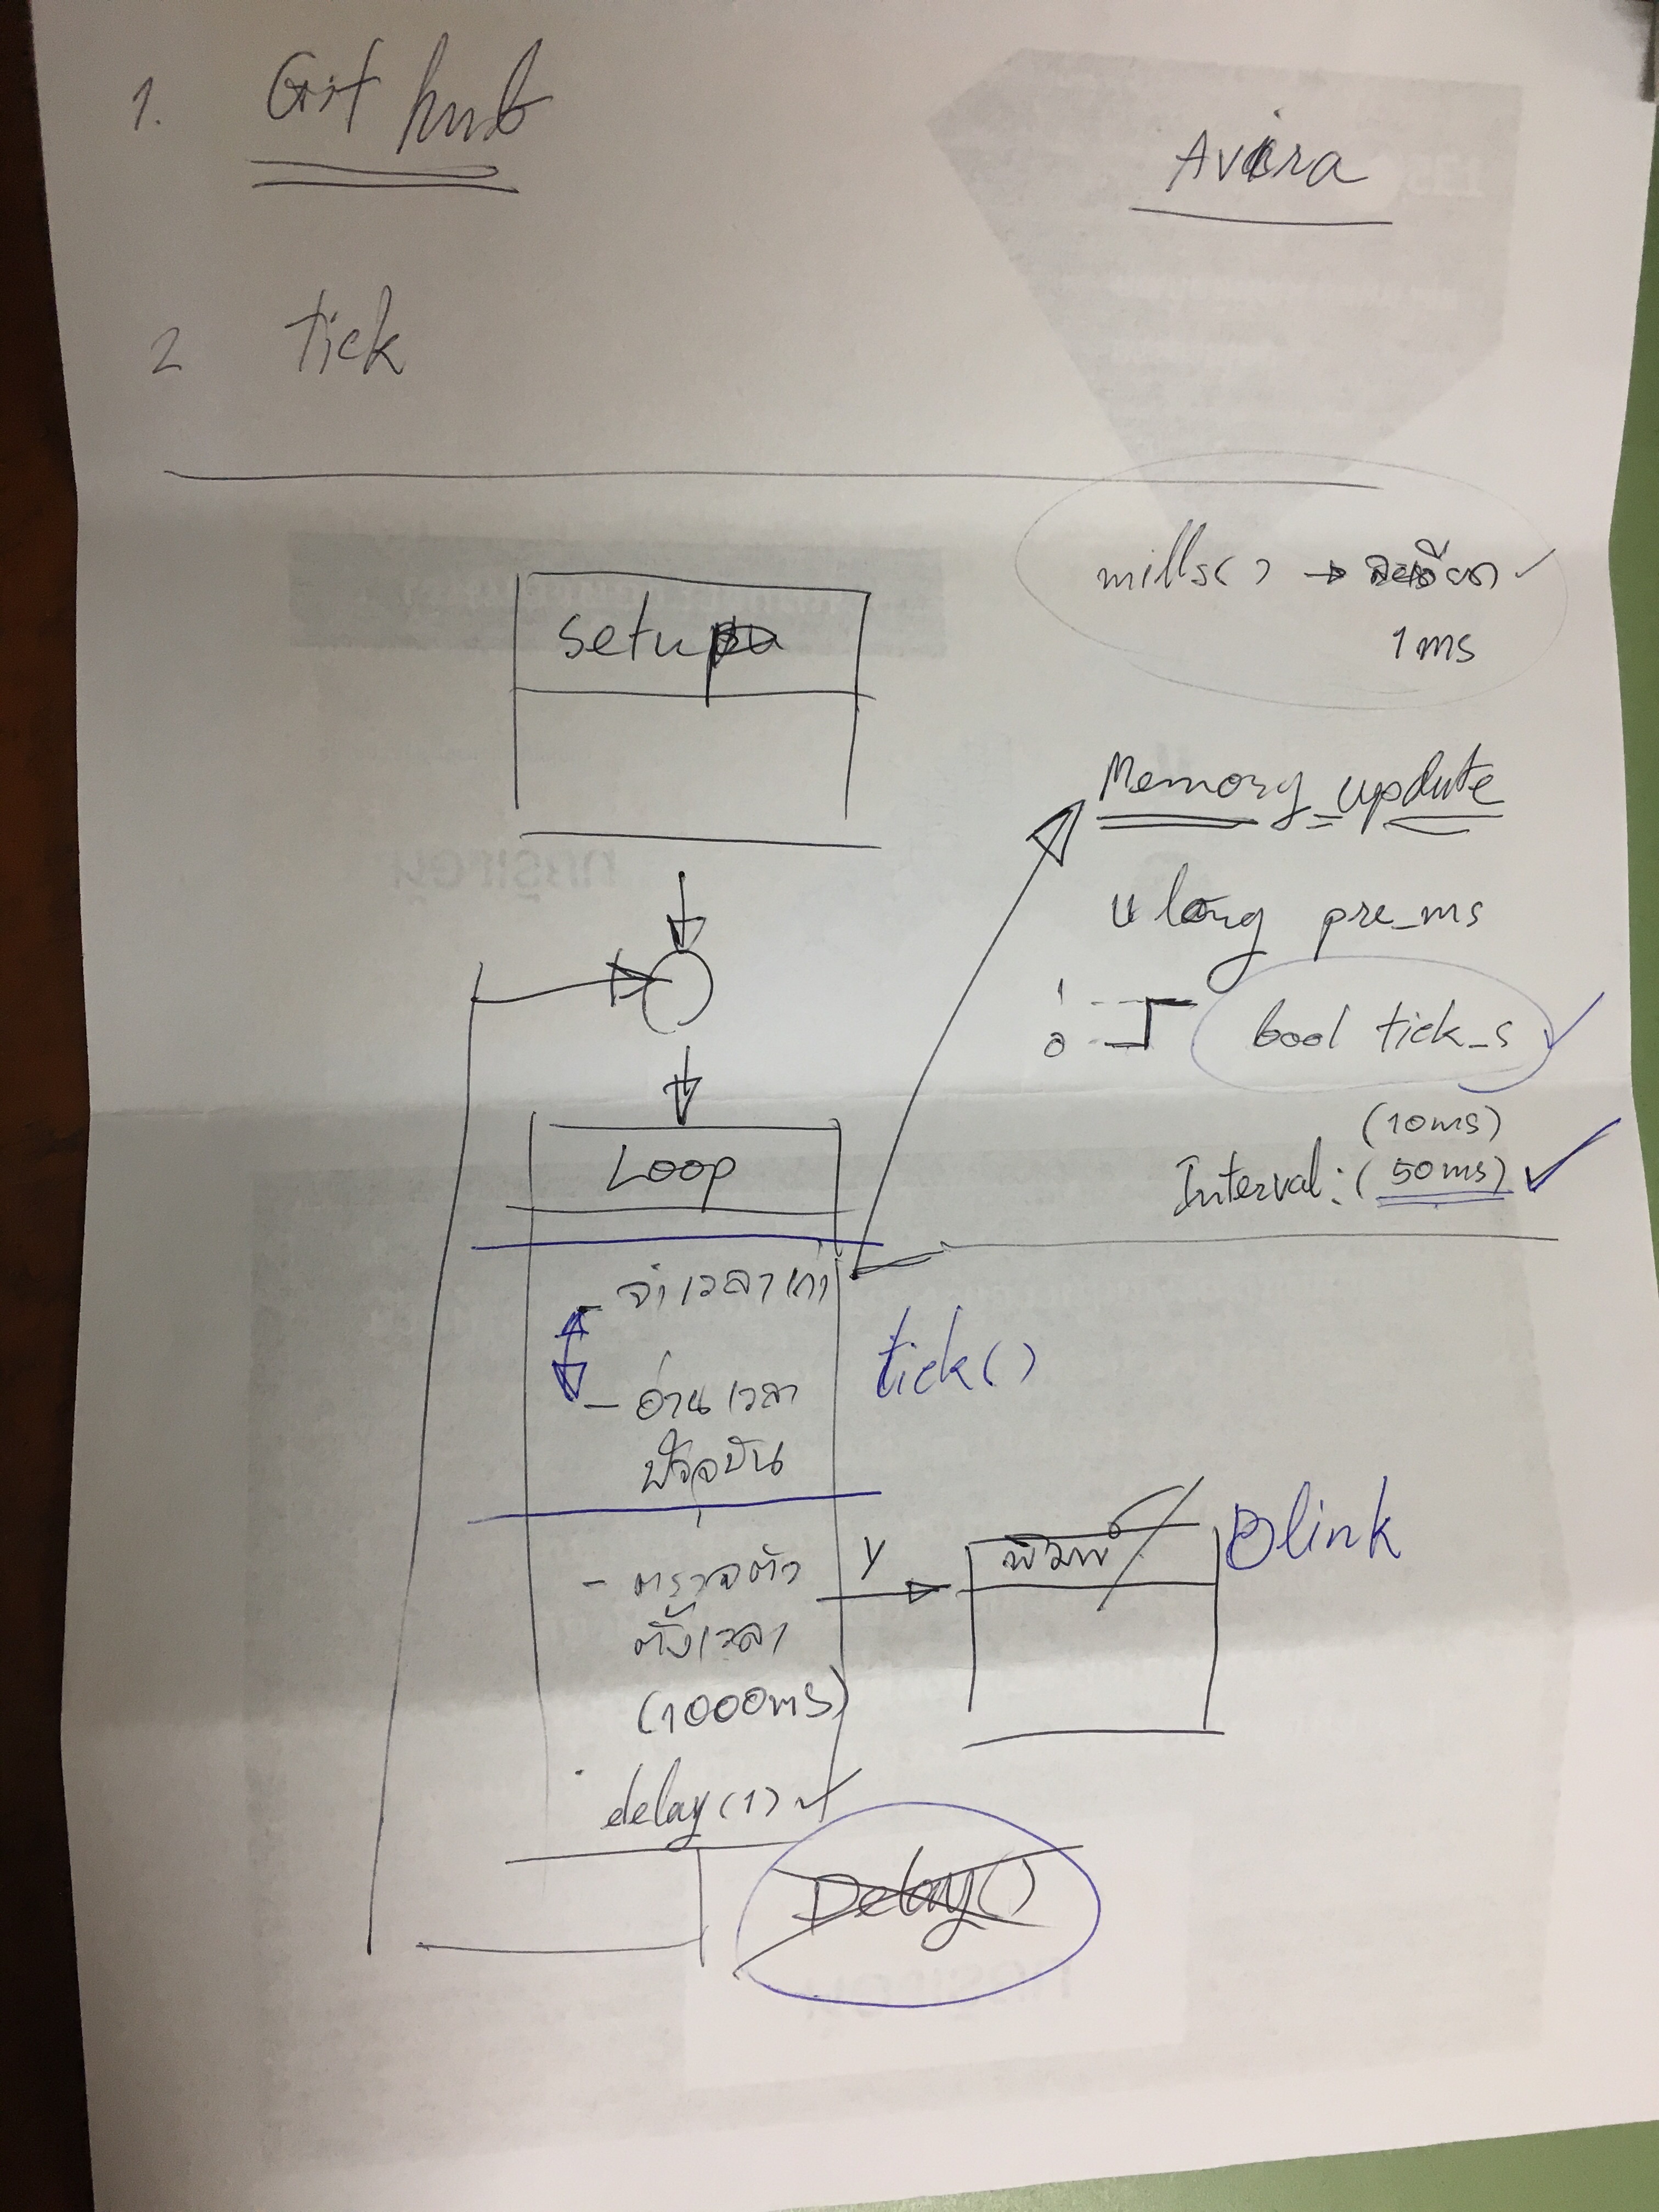 1. Git hub
Avira
2 tick
millis() → ละเอียด
1 ms
setup
Memory update
u long pre_ms
1
0
bool tick_s
(10ms)
Interval: (50ms)
Loop
- จำเวลาเก่า
tick()
- อ่านเวลา
ปัจจุบัน
- ตรวจตัว
ตั้งเวลา
(1000ms)
Y
พิมพ์
Blink
delay(1)
Delay()